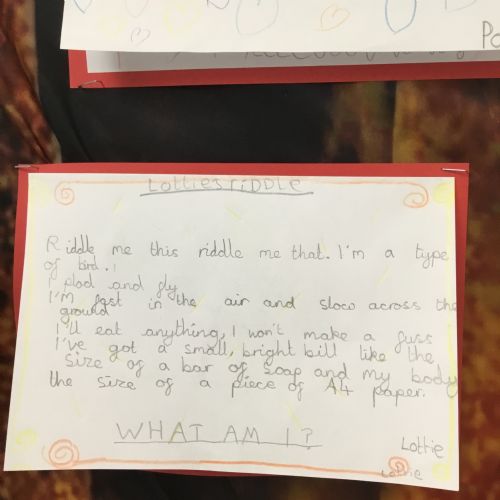 Po
Lottie's riDDLE
Riddle me this riddle me that. I'm a type
of bird.
I plod and fly
I'm fast in the air and slow across the
ground
I'll eat anything, I won't make a fuss
I've got a small, bright bill like the
size of a bar of soap and my body
the size of a piece of A4 paper.
WHAT AM I?
Lottie
Lottie